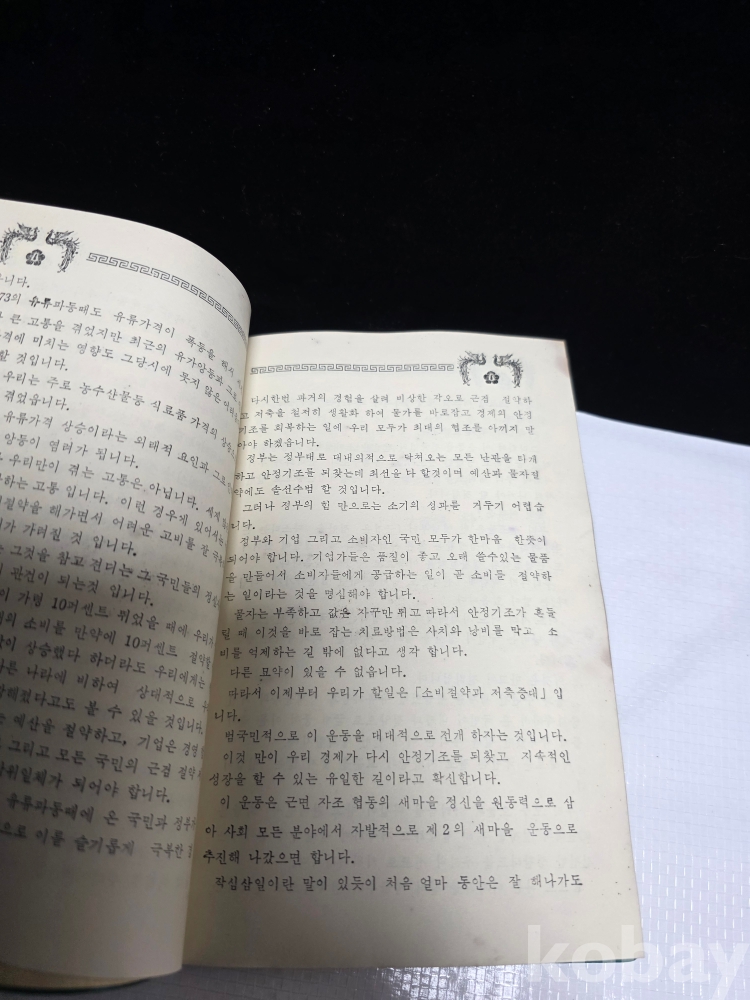 습니다.
73의 유류파동때도 유류가격이 폭등을 해서
큰 고통을 겪었지만 최근의 유가앙등과
가격에 미치는 영향도 그당시에 못지 않은
할 것입니다.
우리는 주로 농수산물등 식료품 가격의
겪었습니다.
유류가격 상승이라는 외래적 요인과
앙등이 염려가 됩니다.
우리만이 겪는 고통은 아닙니다.
하는 고통 입니다. 이런 경우에 있어서는
절약을 해가면서 어려운 고비를 잘
가 가려질 것 입니다.
그것을 참고 견디는 그 국민들의
관건이 되는것 입니다.
가령 10퍼센트 뛰었을 때에 우리가
의 소비를 만약에 10퍼센트 절약할
이 상승했다 하더라도 우리에게는
다른 나라에 비하여 상대적으로
해졌다고도 볼 수 있을 것입니다.
예산을 절약하고, 기업은 경영
그리고 모든 국민의 근검 절약
위일체가 되어야 합니다.
유류파동때에 온 국민과
으로 이를 슬기롭게 극복한
다시한번 과거의 경험을 살려 비상한 각오로 근검 절약하
고 저축을 철저히 생활화 하여 물가를 바로잡고 경제의 안정
기조를 회복하는 일에 우리 모두가 최대의 협조를 아끼지 말
아야 하겠습니다.
정부는 정부대로 대내외적으로 닥쳐오는 모든 난관을 타개
하고 안정기조를 되찾는데 최선을 다 할것이며 예산과 물자절
약에도 솔선수범 할 것입니다.
그러나 정부의 힘 만으로는 소기의 성과를 거두기 어렵습
니다.
정부와 기업 그리고 소비자인 국민 모두가 한마음 한뜻이
되어야 합니다. 기업가들은 품질이 좋고 오래 쓸수있는 물품
을 만들어서 소비자들에게 공급하는 일이 곧 소비를 절약하
는 일이라는 것을 명심해야 합니다.
물자는 부족하고 값은 자꾸만 뛰고 따라서 안정기조가 흔들
릴 때 이것을 바로 잡는 치료방법은 사치와 낭비를 막고 소
비를 억제하는 길 밖에 없다고 생각 합니다.
다른 묘약이 있을 수 없읍니다.
따라서 이제부터 우리가 할일은 「소비절약과 저축증대」입
니다.
범국민적으로 이 운동을 대대적으로 전개 하자는 것입니다.
이것 만이 우리 경제가 다시 안정기조를 되찾고 지속적인
성장을 할 수 있는 유일한 길이라고 확신합니다.
이 운동은 근면 자조 협동의 새마을 정신을 원동력으로 삼
아 사회 모든 분야에서 자발적으로 제2의 새마을 운동으로
추진해 나갔으면 합니다.
작심삼일이란 말이 있듯이 처음 얼마 동안은 잘 해나가도
kobay